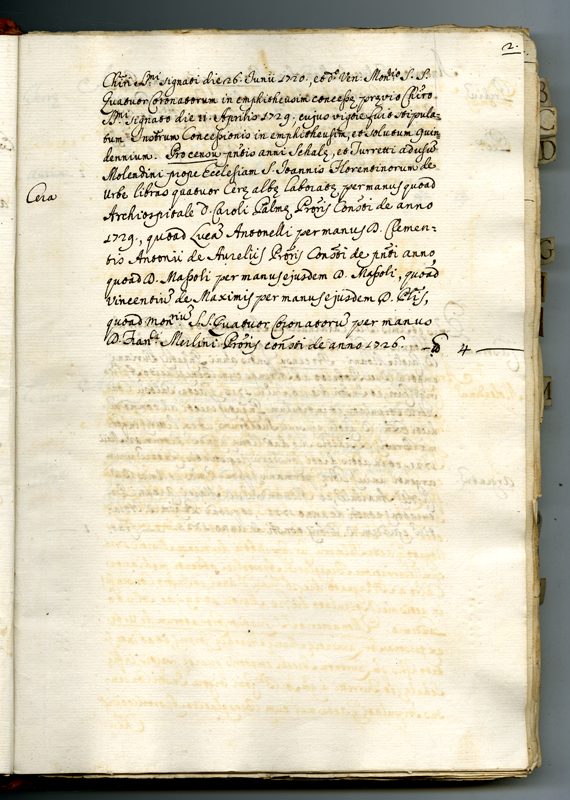 2.
Chiri SSmi signati die 26. Junii 1720, et do Ven: Monrio S. S.
Quatuor Coronatorum in emphitheusim concessę previo Chiro
SSmi segnato die 11. Aprilis 1729. cujus vigore fuit stipula=
tum Instrum Concessionis in emphiteusim, et solutum quin
dennium. Pro censu pntis anni Schalę, et Turretti ad usum
Molendini prope Ecclesiam S. Joannis Florentinorum de
Cera
Urbe libras quatuor Cerę albę laboratę per manus quoad
Archiospitale D. Caroli Palmę Proris Consti de anno
1729., quoad Lucã Antonelli per manus D. Clemen=
tis Antonii de Aureliis Proris Consti de pnti anno,
quoad D. Massoli per manus ejusdem D. Massoli, quoad
Vincentiũ de Maximis per manus ejusdem D. Ptris,
quoad monriũ S.S. Quatuor Coronatorũ per manus
D. Franci Merlini Proris consti de anno 1726. — lb 4 —
B
C
D
G
M